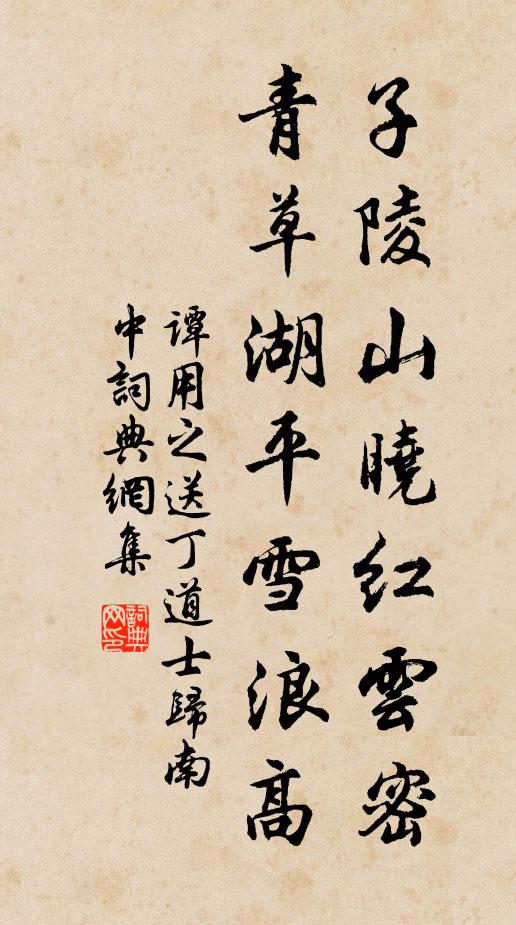 子陵山曉紅雲密
青草湖平雪浪高
譚用之送丁道士歸南
中詞典網集
詞典
网印